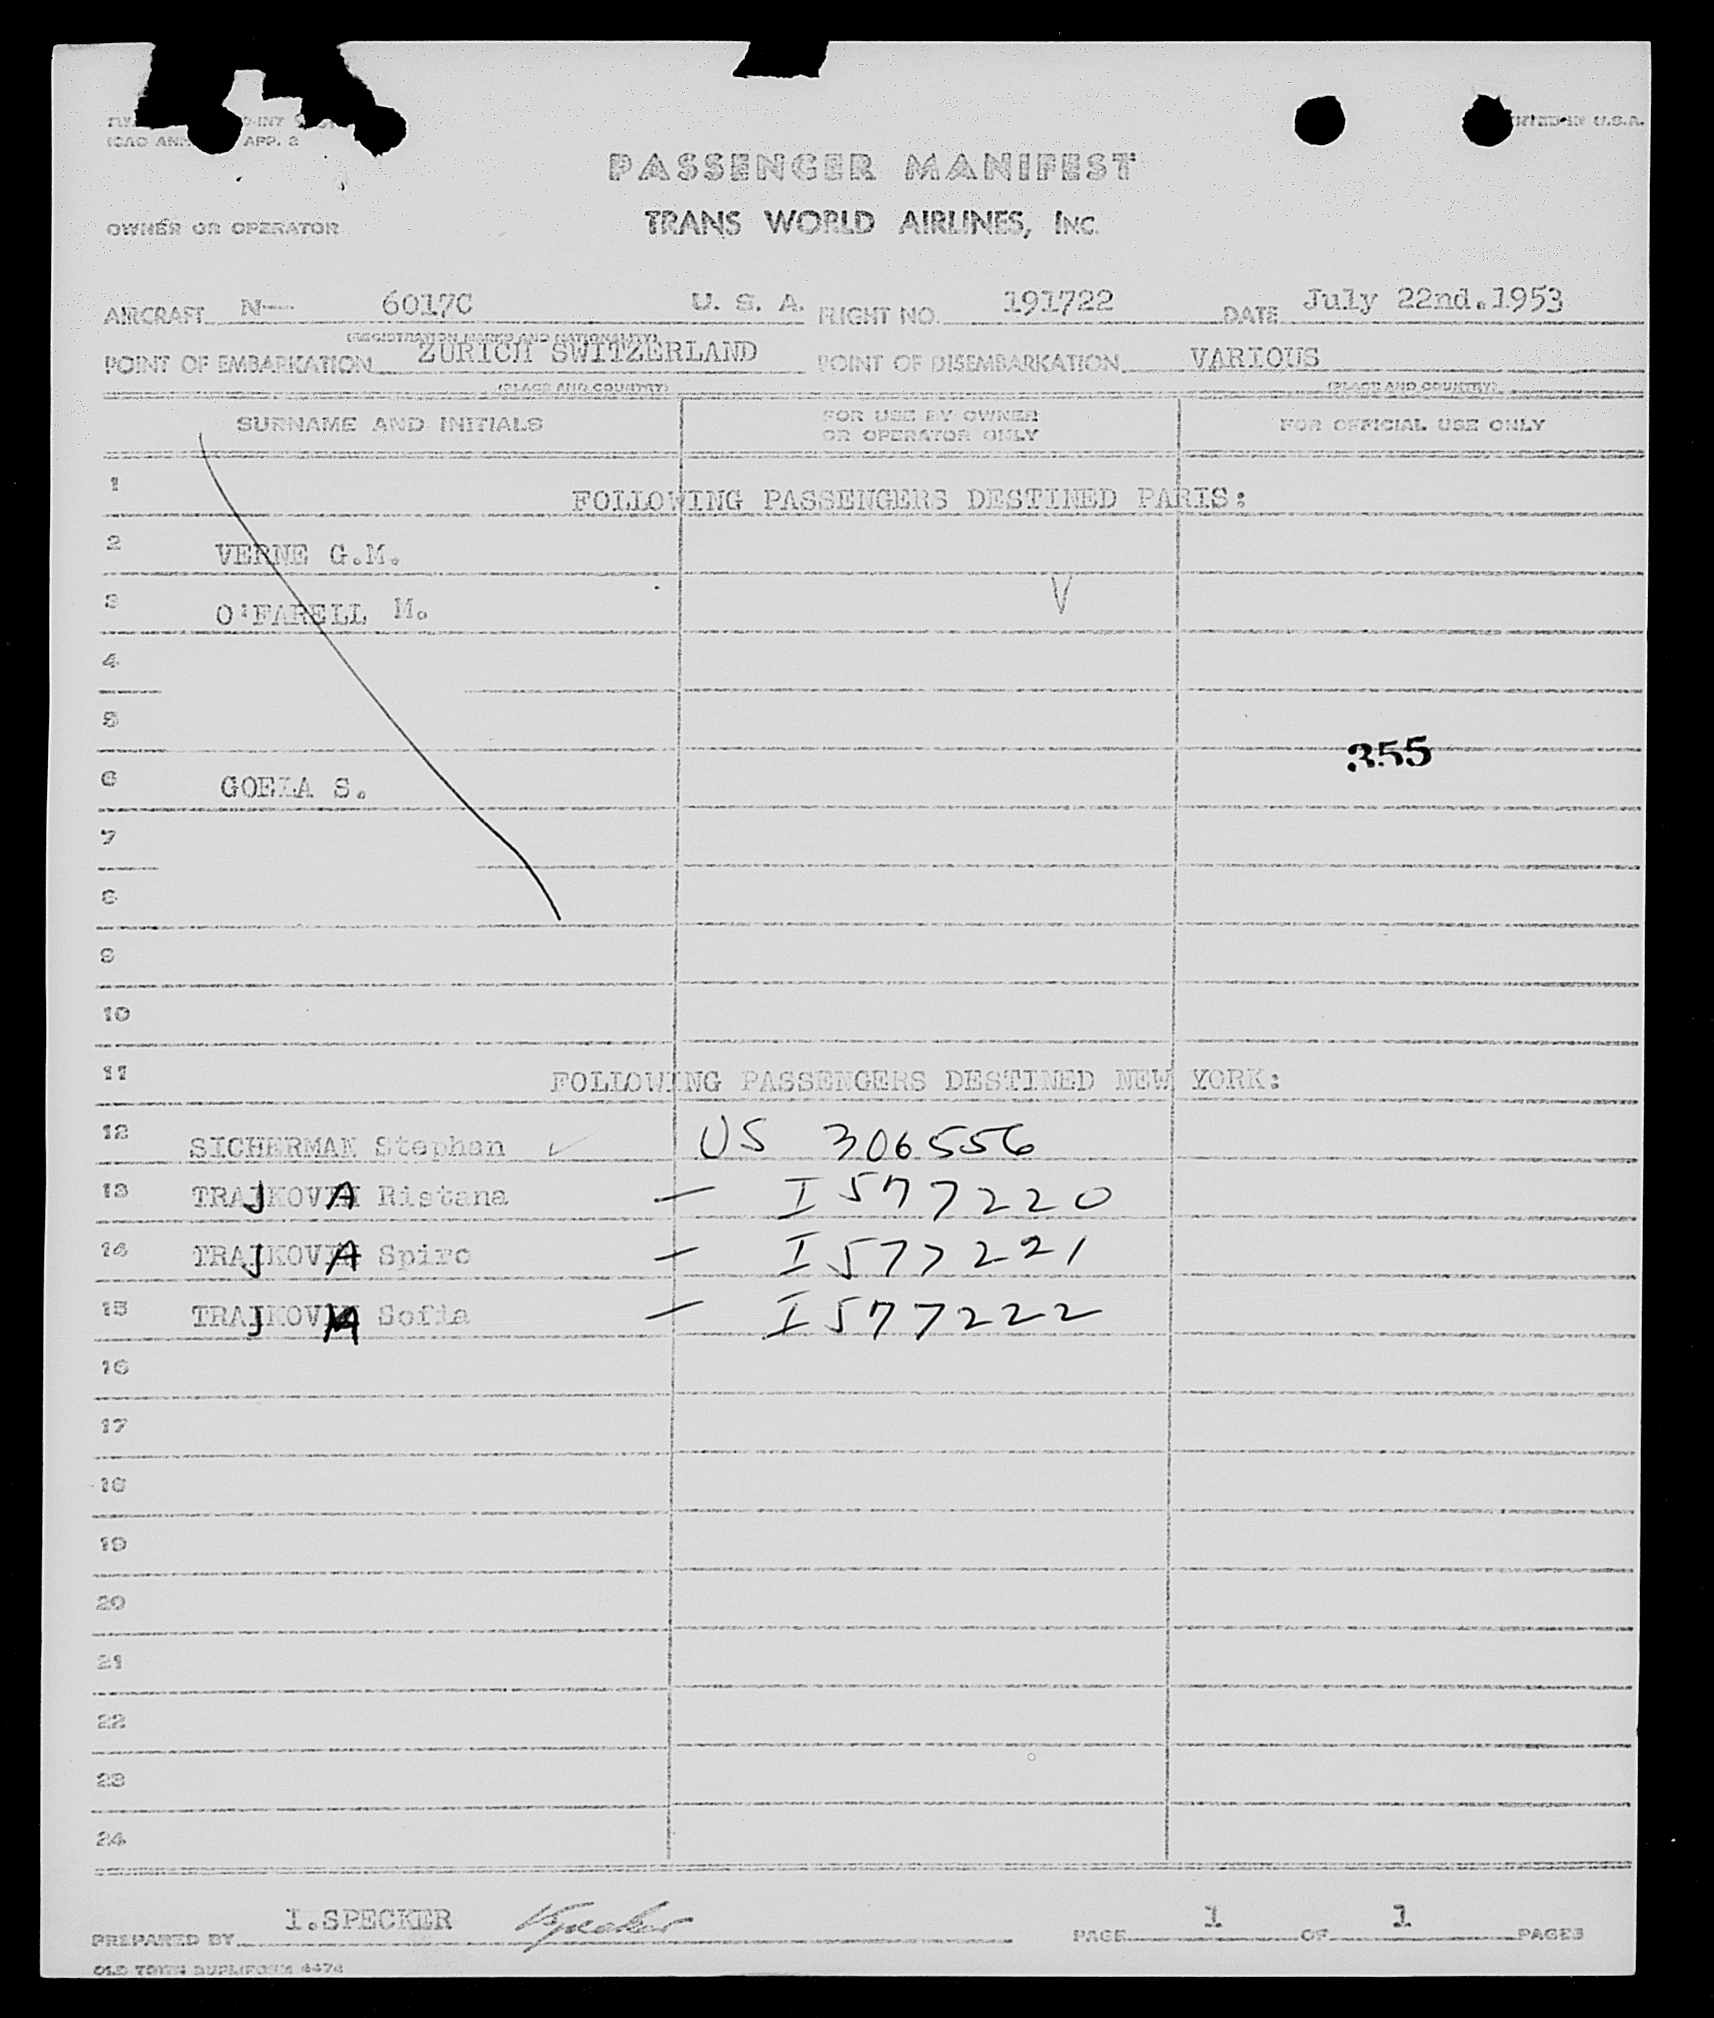 ICAO ANN APP. 2
PRINTED IN U.S.A.
PASSENGER MANIFEST
OWNER OR OPERATOR TRANS WORLD AIRLINES, INC.
AIRCRAFT N— 6017C U. S. A. FLIGHT NO. 191722 DATE July 22nd.1953
(REGISTRATION MARKS AND NATIONALITY)
POINT OF EMBARKATION ZURICH SWITZERLAND POINT OF DISEMBARKATION VARIOUS
(PLACE AND COUNTRY) (PLACE AND COUNTRY)
SURNAME AND INITIALS FOR USE BY OWNER OR OPERATOR ONLY FOR OFFICIAL USE ONLY
1 FOLLOWING PASSENGERS DESTINED PARIS:
2 VERNE G.M.
3 O'FARELL M. V
4
5
355
6 S.
7
8
9
10
11 FOLLOWING PASSENGERS DESTINED NEW YORK:
12 SICHERMAN Stephan ✓ US 306556
13 TRAJKOVA Ristana — I577220
14 TRAJKOVA Spiro — I577221
15 Sofia — I577222
16
17
18
19
20
21
22
23
24
PREPARED BY I.SPECKER Specker PAGE 1 OF 1 PAGES
OLD TOWN DUPLIFORM 4474